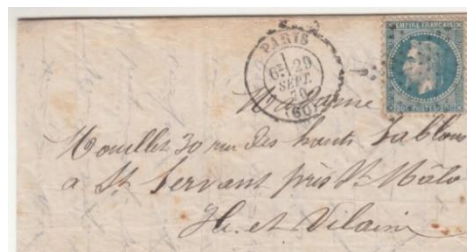 PARIS
6E 29
SEPT.
70
(60)
EMPIRE FRANÇAIS
Madame
30 rue des hauts Sablons
à St Servant près St Malo
Ile et Vilaine